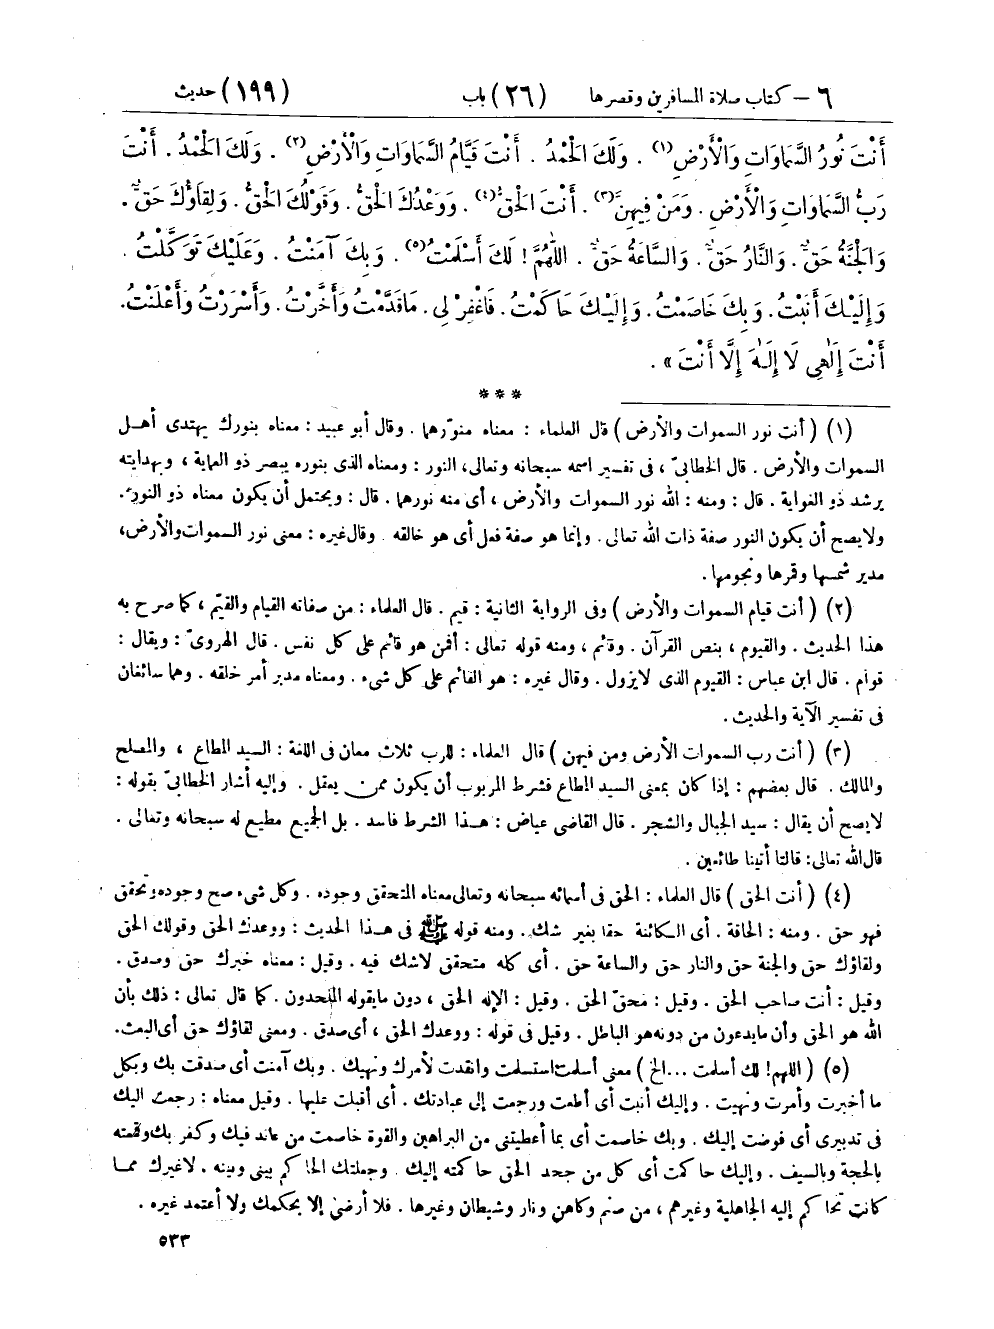 ٦ – كتاب صلاة المسافرين وقصرها (٢٦) باب (١٩٩) حديث
أَنْتَ نُورُ السَّمَاوَاتِ وَالْأَرْضِ(١) . وَلَكَ الْحَمْدُ . أَنْتَ قَيَّامُ السَّمَاوَاتِ وَالْأَرْضِ(٢) . وَلَكَ الْحَمْدُ . أَنْتَ
رَبُّ السَّمَاوَاتِ وَالْأَرْضِ . وَمَنْ فِيهِنَّ(٣) . أَنْتَ الْحَقُّ(٤) . وَوَعْدُكَ الْحَقُّ . وَقَوْلُكَ الْحَقُّ . وَلِقَاؤُكَ حَقٌّ .
وَالْجَنَّةُ حَقٌّ . وَالنَّارُ حَقٌّ . وَالسَّاعَةُ حَقٌّ . اللّٰهُمَّ ! لَكَ أَسْلَمْتُ(٥) . وَبِكَ آمَنْتُ . وَعَلَيْكَ تَوَكَّلْتُ .
وَإِلَيْكَ أَنَبْتُ . وَبِكَ خَاصَمْتُ . وَإِلَيْكَ حَاكَمْتُ . فَاغْفِرْ لِى . مَا قَدَّمْتُ وَأَخَّرْتُ . وَأَسْرَرْتُ وَأَعْلَنْتُ .
أَنْتَ إِلٰهِى لَا إِلٰهَ إِلَّا أَنْتَ » .
* * *
(١) ( أنت نور السموات والأرض ) قال العلماء : معناه منوّرهما . وقال أبو عبيد : معناه بنورك يهتدى أهل
السموات والأرض . قال الخطابىّ ، فى تفسير اسمه سبحانه وتعالى، النور : ومعناه الذى بنوره يبصر ذو العماية ، وبهدايته
يرشد ذو الغواية . قال : ومنه : الله نور السموات والأرض ، أى منه نورهما . قال : ويحتمل أن يكون معناه ذو النور .
ولا يصح أن يكون النور صفة ذات الله تعالى . وإنما هو صفة فعل أى هو خالقه . وقال غيره : معنى نور السموات والأرض،
مدبر شمسها وقمرها ونجومها .
(٢) ( أنت قيام السموات والأرض ) وفى الرواية الثانية : قيم . قال العلماء : من صفاته القيام والقيّم ، كما صرح به
هذا الحديث . والقيوم ، بنص القرآن . وقائم ، ومنه قوله تعالى : أفمن هو قائم على كل نفس . قال الهروىّ : ويقال :
قوام . قال ابن عباس : القيوم الذى لا يزول . وقال غيره : هو القائم على كل شىء . ومعناه مدبر أمر خلقه . وهما سائغان
فى تفسير الآية والحديث .
(٣) ( أنت رب السموات الأرض ومن فيهن ) قال العلماء : للرب ثلاث معان فى اللغة : السيد المطاع ، والمصلح
والمالك . قال بعضهم : إذا كان بمعنى السيد المطاع فشرط المربوب أن يكون ممن يعقل . وإليه أشار الخطابىّ بقوله :
لا يصح أن يقال : سيد الجبال والشجر . قال القاضى عياض : هذا الشرط فاسد . بل الجميع مطيع له سبحانه وتعالى .
قال الله تعالى : قالتا أتينا طائعين .
(٤) ( أنت الحق ) قال العلماء : الحق فى أسمائه سبحانه وتعالى معناه المتحقق وجوده . وكل شىء صح وجوده وتحقق
فهو حق . ومنه : الحاقة . أى الكائنة حقا بغير شك . ومنه قوله ﷺ فى هذا الحديث : ووعدك الحق وقولك الحق
ولقاؤك حق والجنة حق والنار حق والساعة حق . أى كله متحقق لا شك فيه . وقيل : معناه خبرك حق وصدق .
وقيل : أنت صاحب الحق . وقيل : محقّ الحق . وقيل : الإله الحق ، دون ما يقوله الملحدون . كما قال تعالى : ذلك بأن
الله هو الحق وأن ما يدعون من دونه هو الباطل . وقيل فى قوله : ووعدك الحق ، أى صدق . ومعنى لقاؤك حق أى البعث.
(٥) ( اللهم ! لك أسلمت ... الخ ) معنى أسلمت استسلمت وانقدت لأمرك ونهيك . وبك آمنت أى صدقت بك وبكل
ما أخبرت وأمرت ونهيت . وإليك أنبت أى أطعت ورجعت إلى عبادتك . أى أقبلت عليها . وقيل معناه : رجعت اليك
فى تدبيرى أى فوضت إليك . وبك خاصمت أى بما أعطيتنى من البراهين والقوة خاصمت من عاند فيك وكفر بك وقمعته
بالحجة وبالسيف . وإليك حاكمت أى كل من جحد الحق حاكمته إليك وجعلتك الحاكم بينى وبينه . لا غيرك مما
كانت تحاكم إليه الجاهلية وغيرهم ، من صنم وكاهن ونار وشيطان وغيرها . فلا أرضى إلا بحكمك ولا أعتمد غيره .
٥٣٣